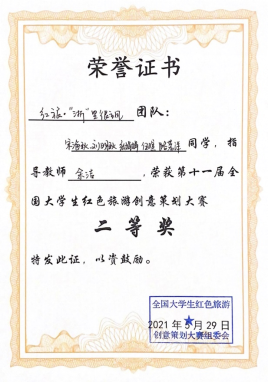 荣誉证书
红旅·"浙"里 团队：
同学，指
导教师 余洁，荣获第十一届全
国大学生红色旅游创意策划大赛
二等奖
特发此证，以资鼓励。
全国大学生红色旅游
2021年5月29日
创意策划大赛组委会